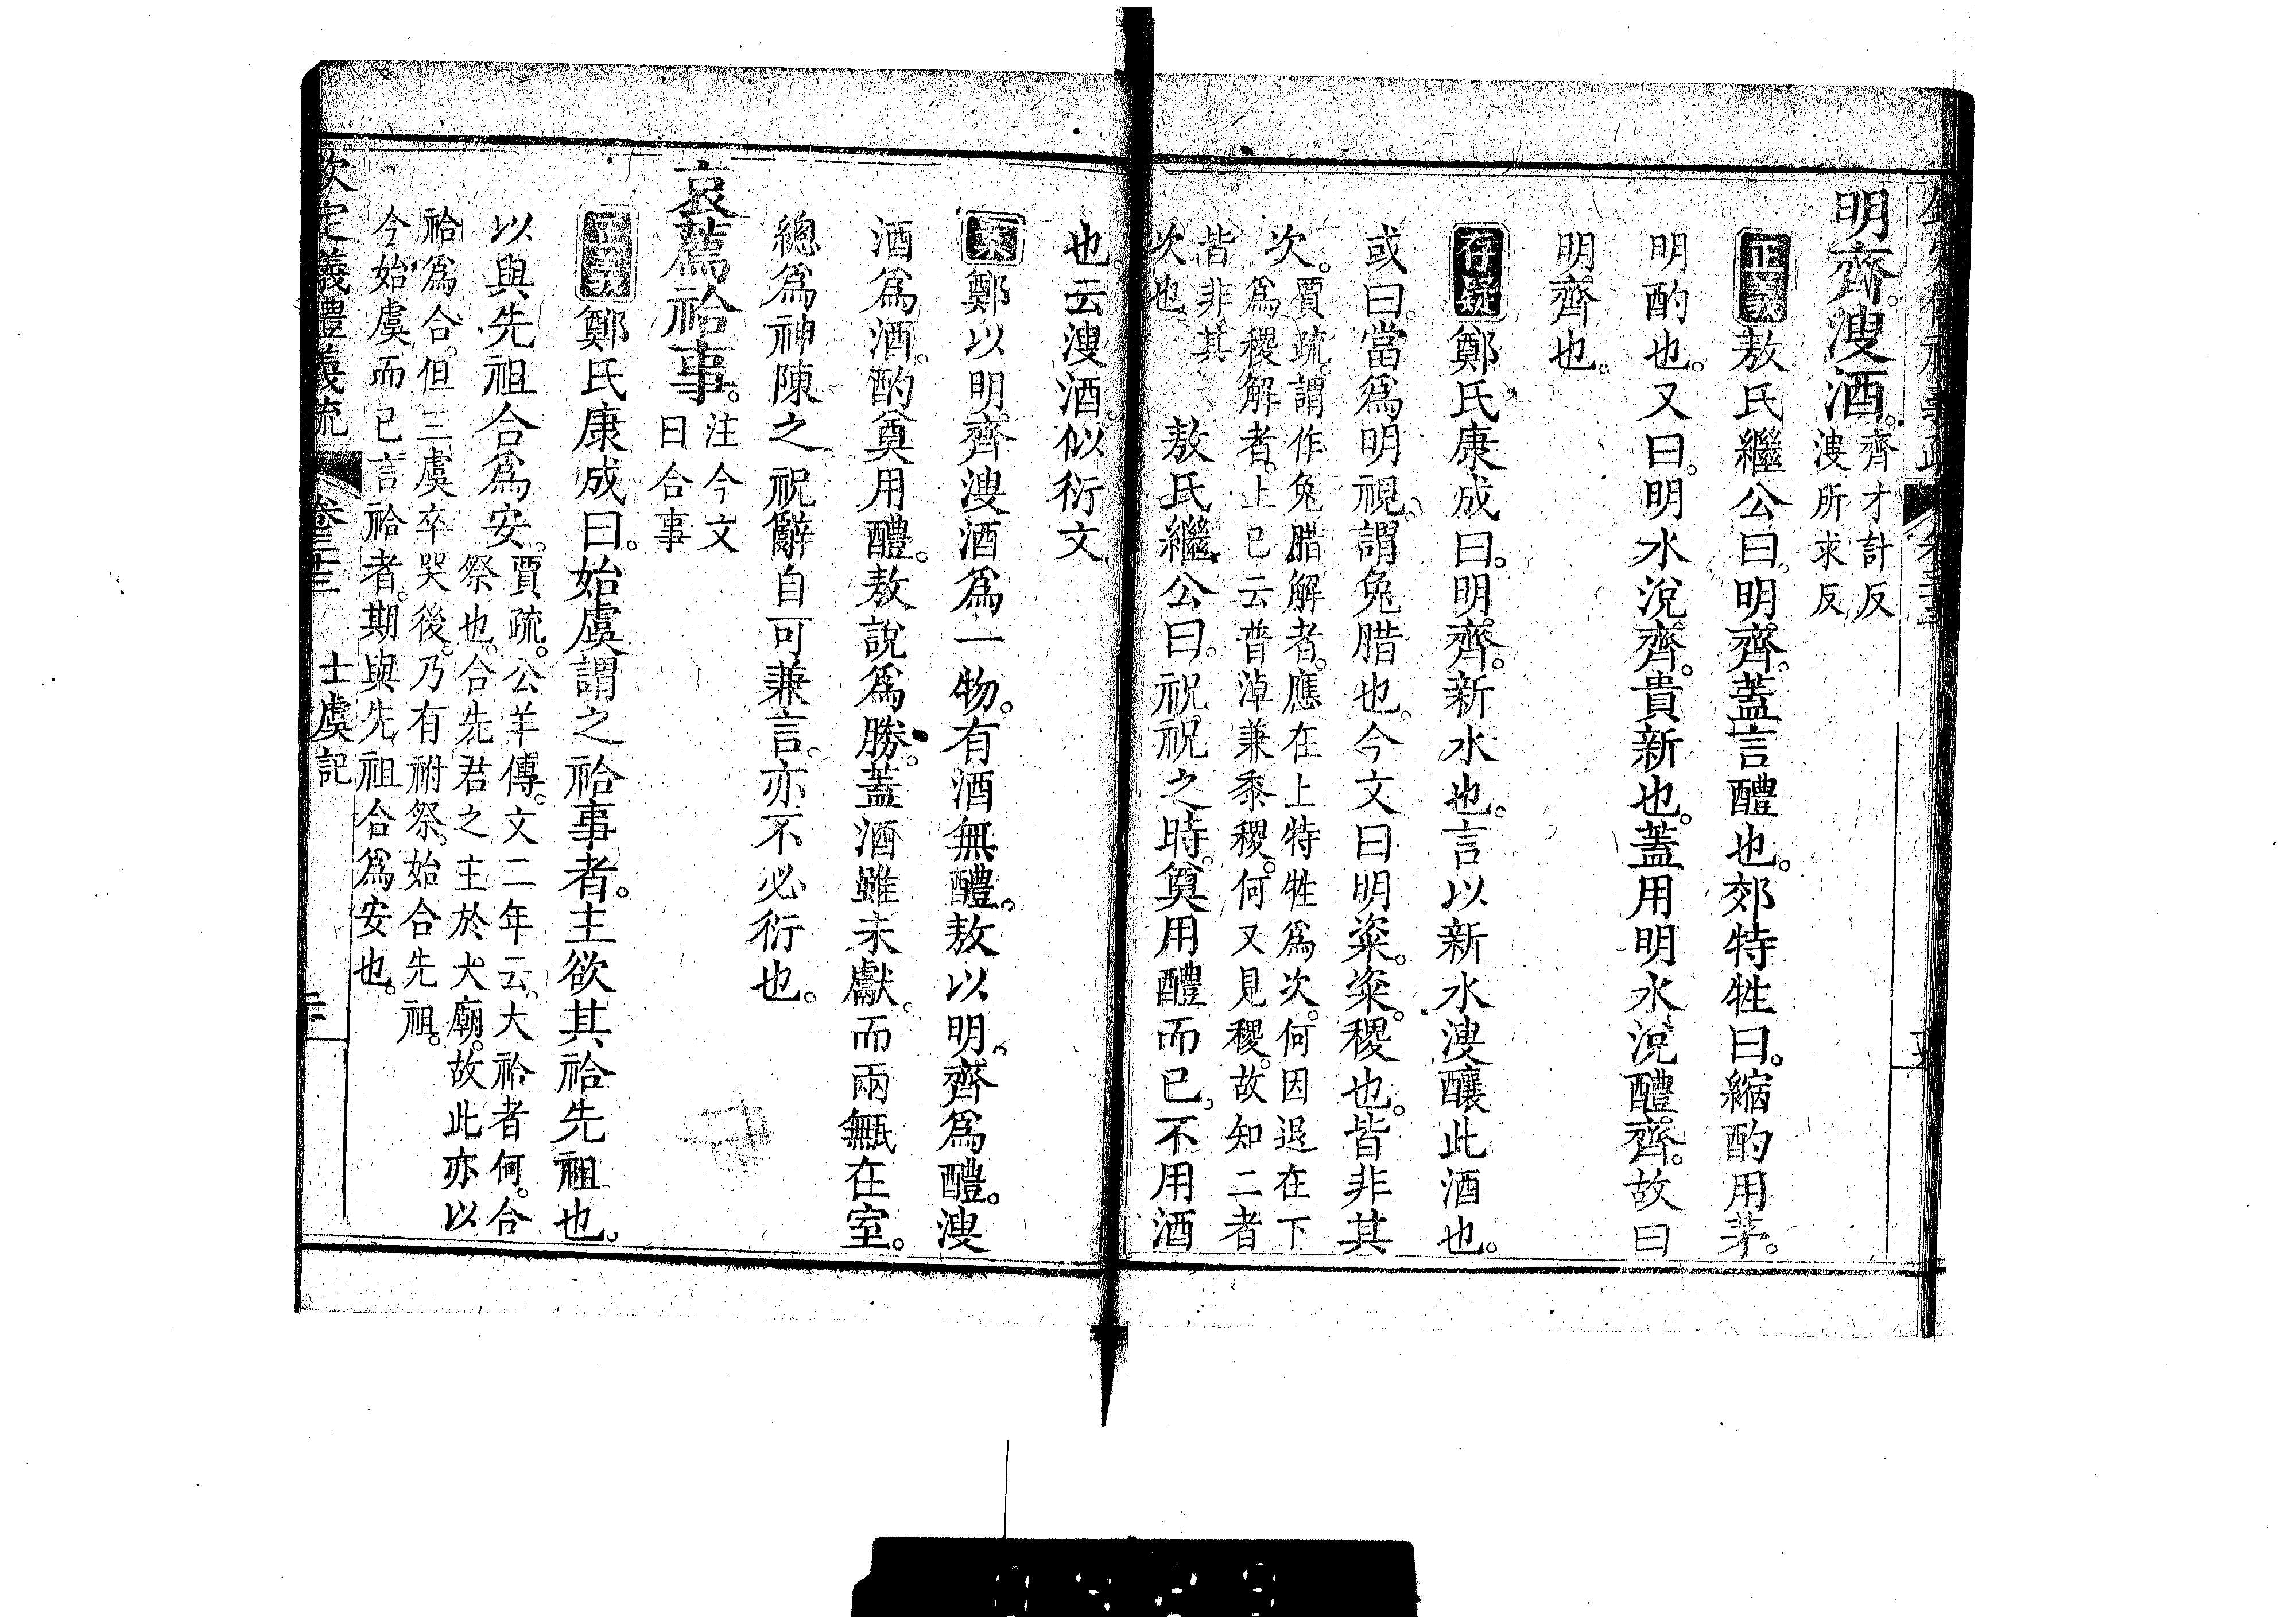 明齊。溲酒。齊才計反
溲所求反
正義敖氏繼公曰。明齊。蓋言醴也。郊特牲曰。縮酌用茅。
明酌也。又曰。明水涚齊。貴新也。蓋用明水涚醴齊。故曰
明齊也。
存疑鄭氏康成曰。明齊。新水也。言以新水溲釀此酒也。
或曰。當爲明視。謂兔腊也。今文曰明粢。粢。稷也。皆非其
次。賈疏。謂作兔腊解者。應在上特牲爲次。何因退在下
爲稷解者。上已云普淖兼黍稷。何又見稷。故知二者
皆非其
次也。敖氏繼公曰。祝祝之時。奠用醴而已。不用酒
也。云溲酒。似衍文
案鄭以明齊溲酒爲一物。有酒無醴。敖以明齊爲醴。溲
酒爲酒。酌奠用醴。敖說爲勝。蓋酒雖未獻。而兩甒在室。
總爲神陳之。祝辭自可兼言。亦不必衍也。
哀薦祫事。注今文
曰合事
正義鄭氏康成曰。始虞謂之祫事者。主欲其祫先祖也。
以與先祖合爲安。賈疏。公羊傳。文二年云。大祫者何。合
祭也。合先君之主於大廟。故此亦以
祫爲合。但三虞卒哭後。乃有祔祭。始合先祖。
今始虞而已言祫者。期與先祖合爲安也。
欽定義禮義疏 卷三十三 士虞記